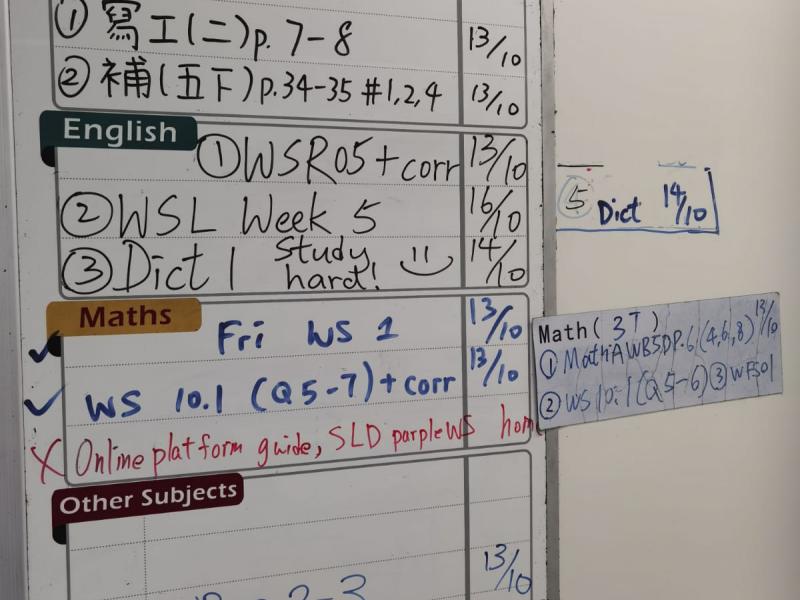 ① 寫工(二)p. 7-8 13/10
② 補(五下)p.34-35 #1,2,4 13/10
English
① WSR05+corr 13/10
② WSL Week 5 16/10
③ Dict 1 Study hard! 14/10
Maths
✓ Fri WS 1 13/10
✓ WS 10.1 (Q5-7)+corr 13/10
X Online platform guide, SLD parple WS hom
Other Subjects
2-3 13/10
⑤ Dict 14/10
Math( 3T )
① Math:A WB5D P.6(4,6,8) 13/10
② WS 10.1(Q5-6) ③ WFS01